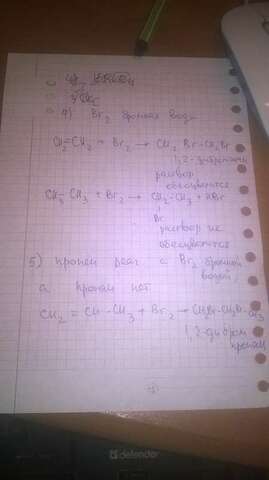 4) Br2 бромная вода
CH2=CH2 + Br2 → CH2Br-CH2Br
1,2-дибромэтан
раствор
обесцвечивается
CH3-CH3 + Br2 → CH2-CH3 + HBr
Br
раствор не
обесцвечивается
5) пропен реаг с Br2 бромной
водой,
а пропан нет
CH2=CH-CH3 + Br2 → CH2Br-CHBr-CH3
1,2-дибром
пропан
defender